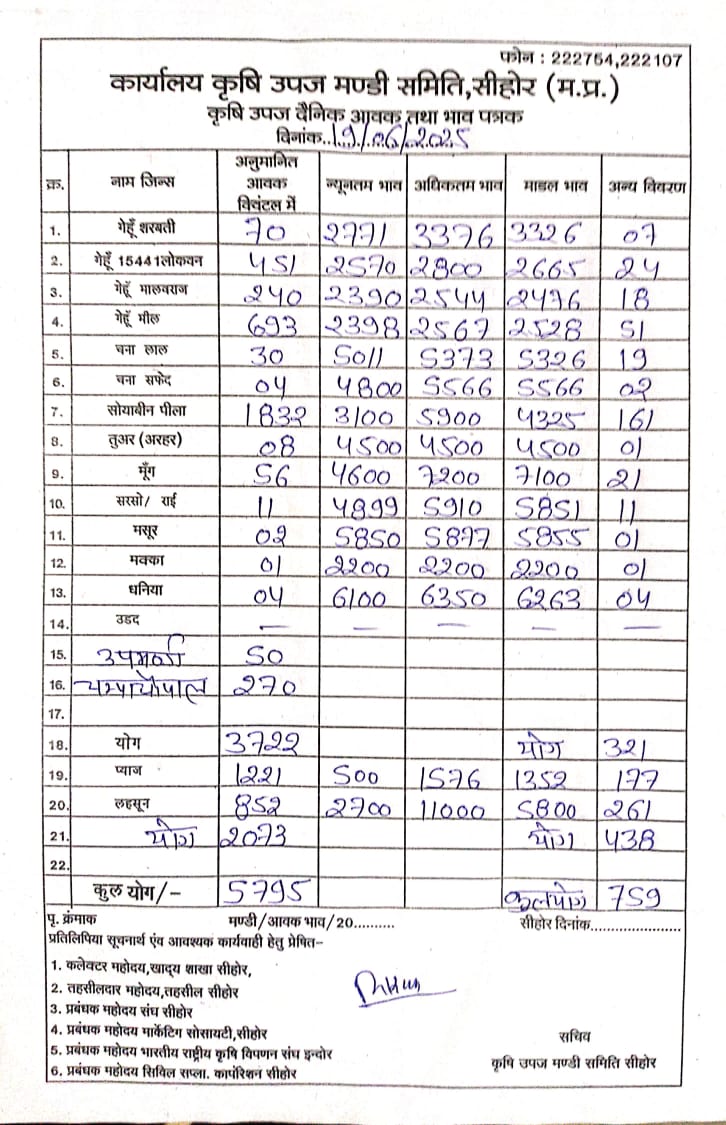 फोन : 222754,222107
कार्यालय कृषि उपज मण्डी समिति,सीहोर (म.प्र.)
कृषि उपज दैनिक आवक तथा भाव पत्रक
दिनांक..19/06/2025
क्र. नाम जिन्स अनुमानित आवक विंचटल में न्यूनतम भाव अधिकतम भाव माडल भाव अन्य विवरण
1. गेहूँ शरबती 70 2771 3376 3326 07
2. गेहूँ 15441लोकवन 451 2570 2800 2665 24
3. गेहूँ मालवराज 240 2390 2544 2476 18
4. गेहूँ मील 693 2398 2567 2528 51
5. चना लाल 30 5011 5373 5326 19
6. चना सफेद 04 4800 5566 5566 02
7. सोयाबीन पीला 1832 3100 5900 4325 161
8. तुअर (अरहर) 08 4500 4500 4500 01
9. मूँग 56 4600 7200 7100 21
10. सरसो/ राई 11 4899 5910 5851 11
11. मसूर 02 5850 5877 5855 01
12. मक्का 01 2200 2200 2200 01
13. धनिया 04 6100 6350 6263 04
14. उडद — — — — —
15. उपमण्डी 50
16. 270
17.
18. योग 3722 योग 321
19. प्याज 1221 500 1576 1352 177
20. लहसून 852 2700 11000 5800 261
21. योग 2073 योग 438
22.
कुल योग/- 5795 कुलयोग 759
पृ. क्रंमाक मण्डी/आवक भाव/20.......... सीहोर दिनांक........................
प्रतिलिपिया सूचनार्थ एंव आवश्यक कार्यवाही हेतु प्रेषित–
1. कलेक्टर महोदय,खाद्य शाखा सीहोर,
2. तहसीलदार महोदय,तहसील सीहोर
3. प्रबंधक महोदय संघ सीहोर
4. प्रबंधक महोदय मार्केटिग सोसायटी,सीहोर
5. प्रबंधक महोदय भारतीय राष्ट्रीय कृषि विपणन संघ इन्दोर
6. प्रबंधक महोदय सिविल सप्ला. कार्पोरेशन सीहोर
सचिव
कृषि उपज मण्डी समिति सीहोर